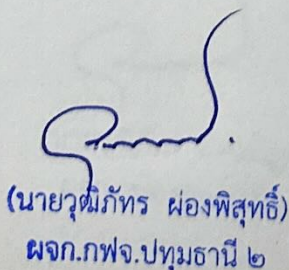 (นายวุฒิภัทร ผ่องพิสุทธิ์)
ผจก.กฟจ.ปทุมธานี ๒